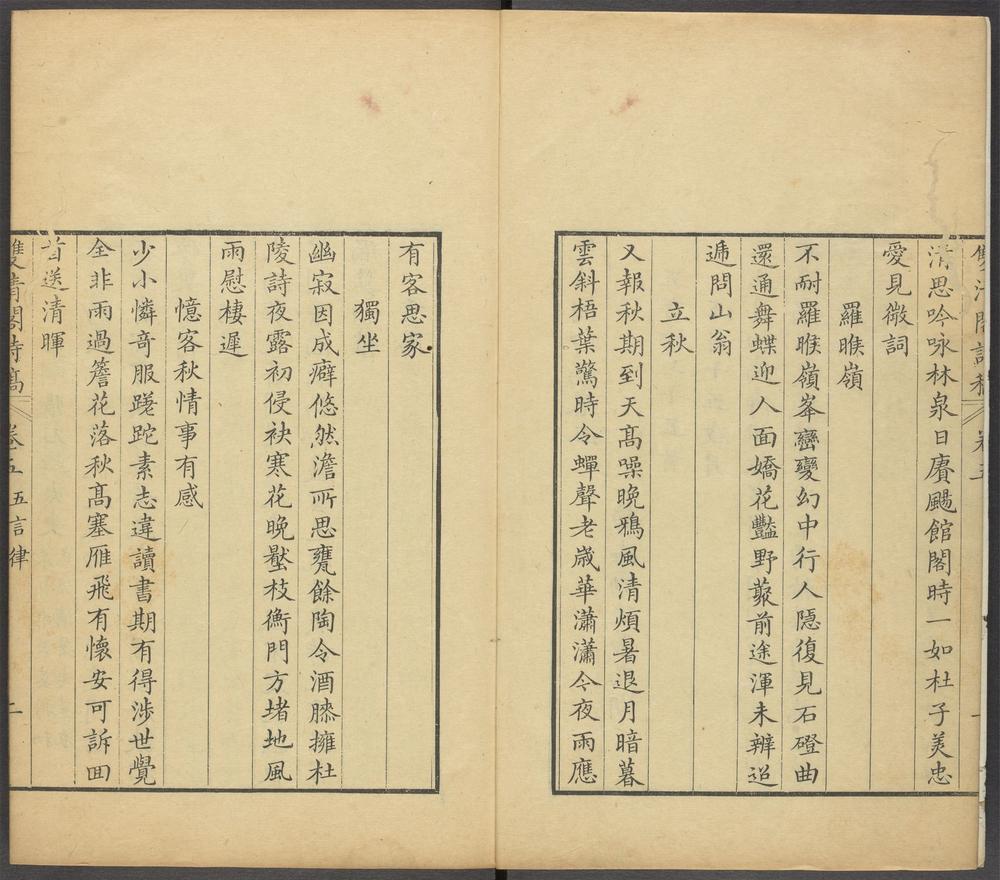 雙清閣詩稿 卷五
清思吟咏林泉日賡颺館閣時一如杜子美忠
愛見微詞
羅睺嶺
不耐羅睺嶺峯巒變幻中行人隱復見石磴曲
還通舞蝶迎人面嬌花豔野藂前途渾未辨迢
遞問山翁
立秋
又報秋期到天髙噪晚鴉風清煩暑退月暗暮
雲斜梧葉驚時令蟬聲老歲華瀟瀟今夜雨應
有客思家
獨坐
幽寂因成癖悠然澹所思甕餘陶令酒膝擁杜
陵詩夜露初侵袂寒花晚壓枝衡門方堵地風
雨慰棲遲
憶客秋情事有感
少小憐竒服蹉跎素志違讀書期有得涉世覺
全非雨過簷花落秋髙塞雁飛有懷安可訴回
首送清暉
雙清閣詩稿 卷五 五言律 二